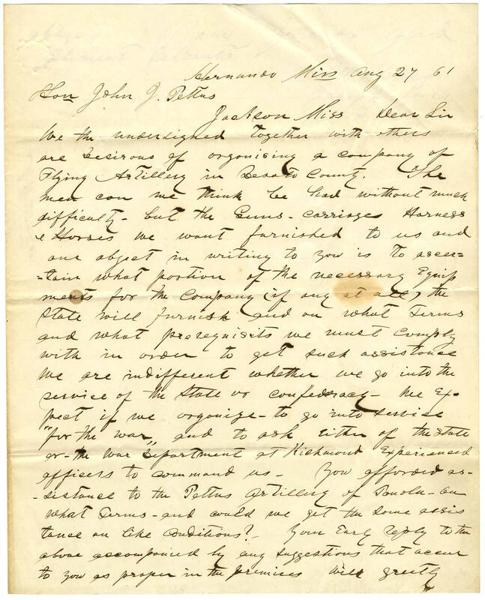 Hernando Miss Aug 27 61
Hon John J. Pettus
Jackson Miss Dear Sir
We the undersigned together with others
are desirous of organising a company of
Flying Artillery in Desoto County. The
men can we think be had without much
difficulty - but the Guns - carriages Harness
& Horses we want furnished to us and
our object in writing to you is to ascer-
-tain what portion of the necessary Equip
ments for the Company (if any at all) the
State will furnish and on what terms
and what prerequisits we must comply
with in order to get such assistance
We are indifferent whether we go into the
service of the State or confederacy - We Ex-
pect if we organize - to go into service
"for the war", and to ask either of the state
or - the War Department at Richmond Experienced
officers to command us - You afforded as-
-sistance to the Pettus Artillery of Panola - on
what terms - and could we get the same assis
tance on like conditions? - Your Early reply to the
above accompanied by any suggestions that occur
to you as proper in the premises will greatly